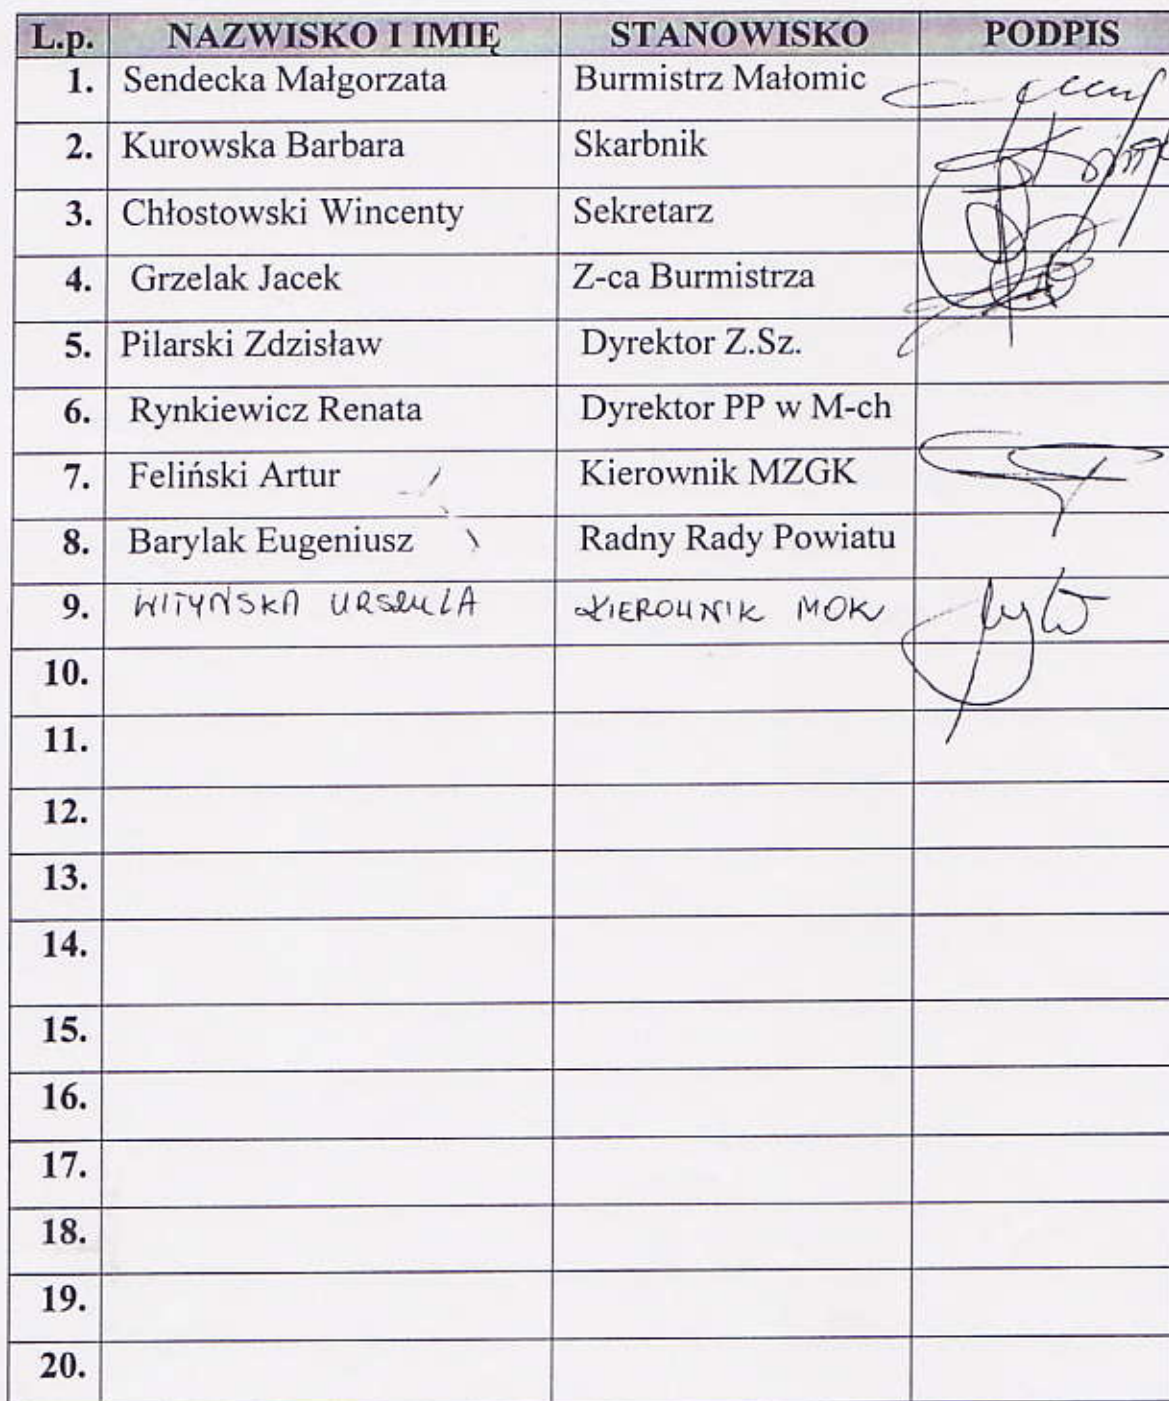 L.p. NAZWISKO I IMIĘ STANOWISKO PODPIS
1. Sendecka Małgorzata Burmistrz Małomic
2. Kurowska Barbara Skarbnik
3. Chłostowski Wincenty Sekretarz
4. Grzelak Jacek Z-ca Burmistrza
5. Pilarski Zdzisław Dyrektor Z.Sz.
6. Rynkiewicz Renata Dyrektor PP w M-ch
7. Feliński Artur Kierownik MZGK
8. Barylak Eugeniusz Radny Rady Powiatu
9. WITYŃSKA URSZULA KIEROWNIK MOK
10.
11.
12.
13.
14.
15.
16.
17.
18.
19.
20.